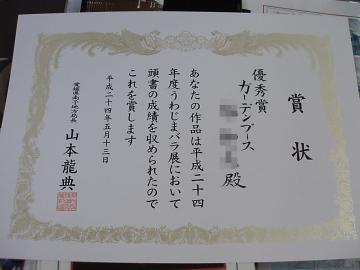 賞状
優秀賞
ガーデンブース
殿
あなたの作品は平成二十四
年度うわじまバラ展において
頭書の成績を収められたので
これを賞します
平成二十四年五月十三日
愛媛県南予地方局長
山本龍典